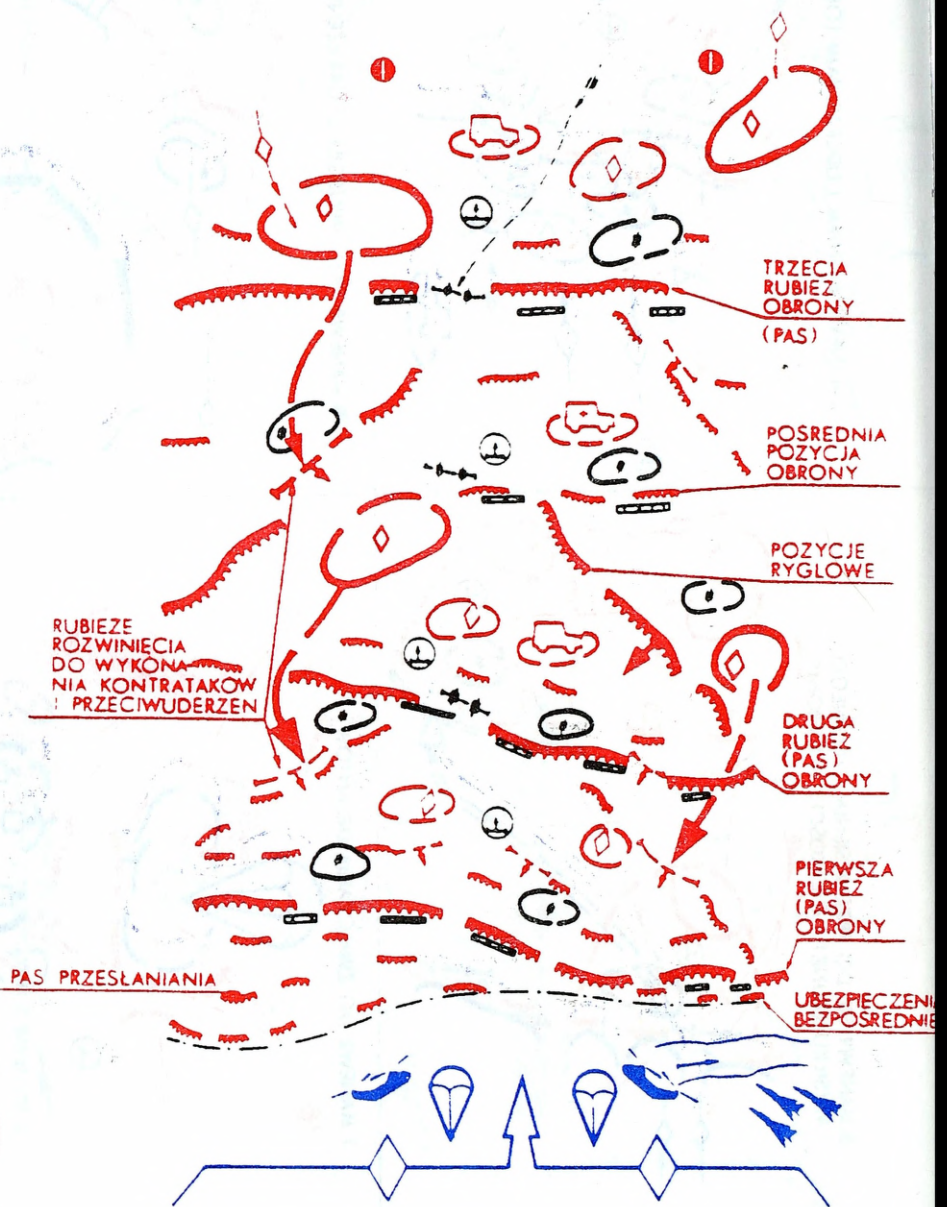 TRZECIA
RUBIEŻ
OBRONY
(PAS)
POŚREDNIA
POZYCJA
OBRONY
POZYCJE
RYGLOWE
RUBIEŻE
ROZWINIĘCIA
DO WYKONA-
NIA KONTRATAKÓW
I PRZECIWUDERZEŃ
DRUGA
RUBIEŻ
(PAS)
OBRONY
PIERWSZA
RUBIEŻ
(PAS)
OBRONY
PAS PRZESŁANIANIA
UBEZPIECZENI
BEZPOŚREDNIE